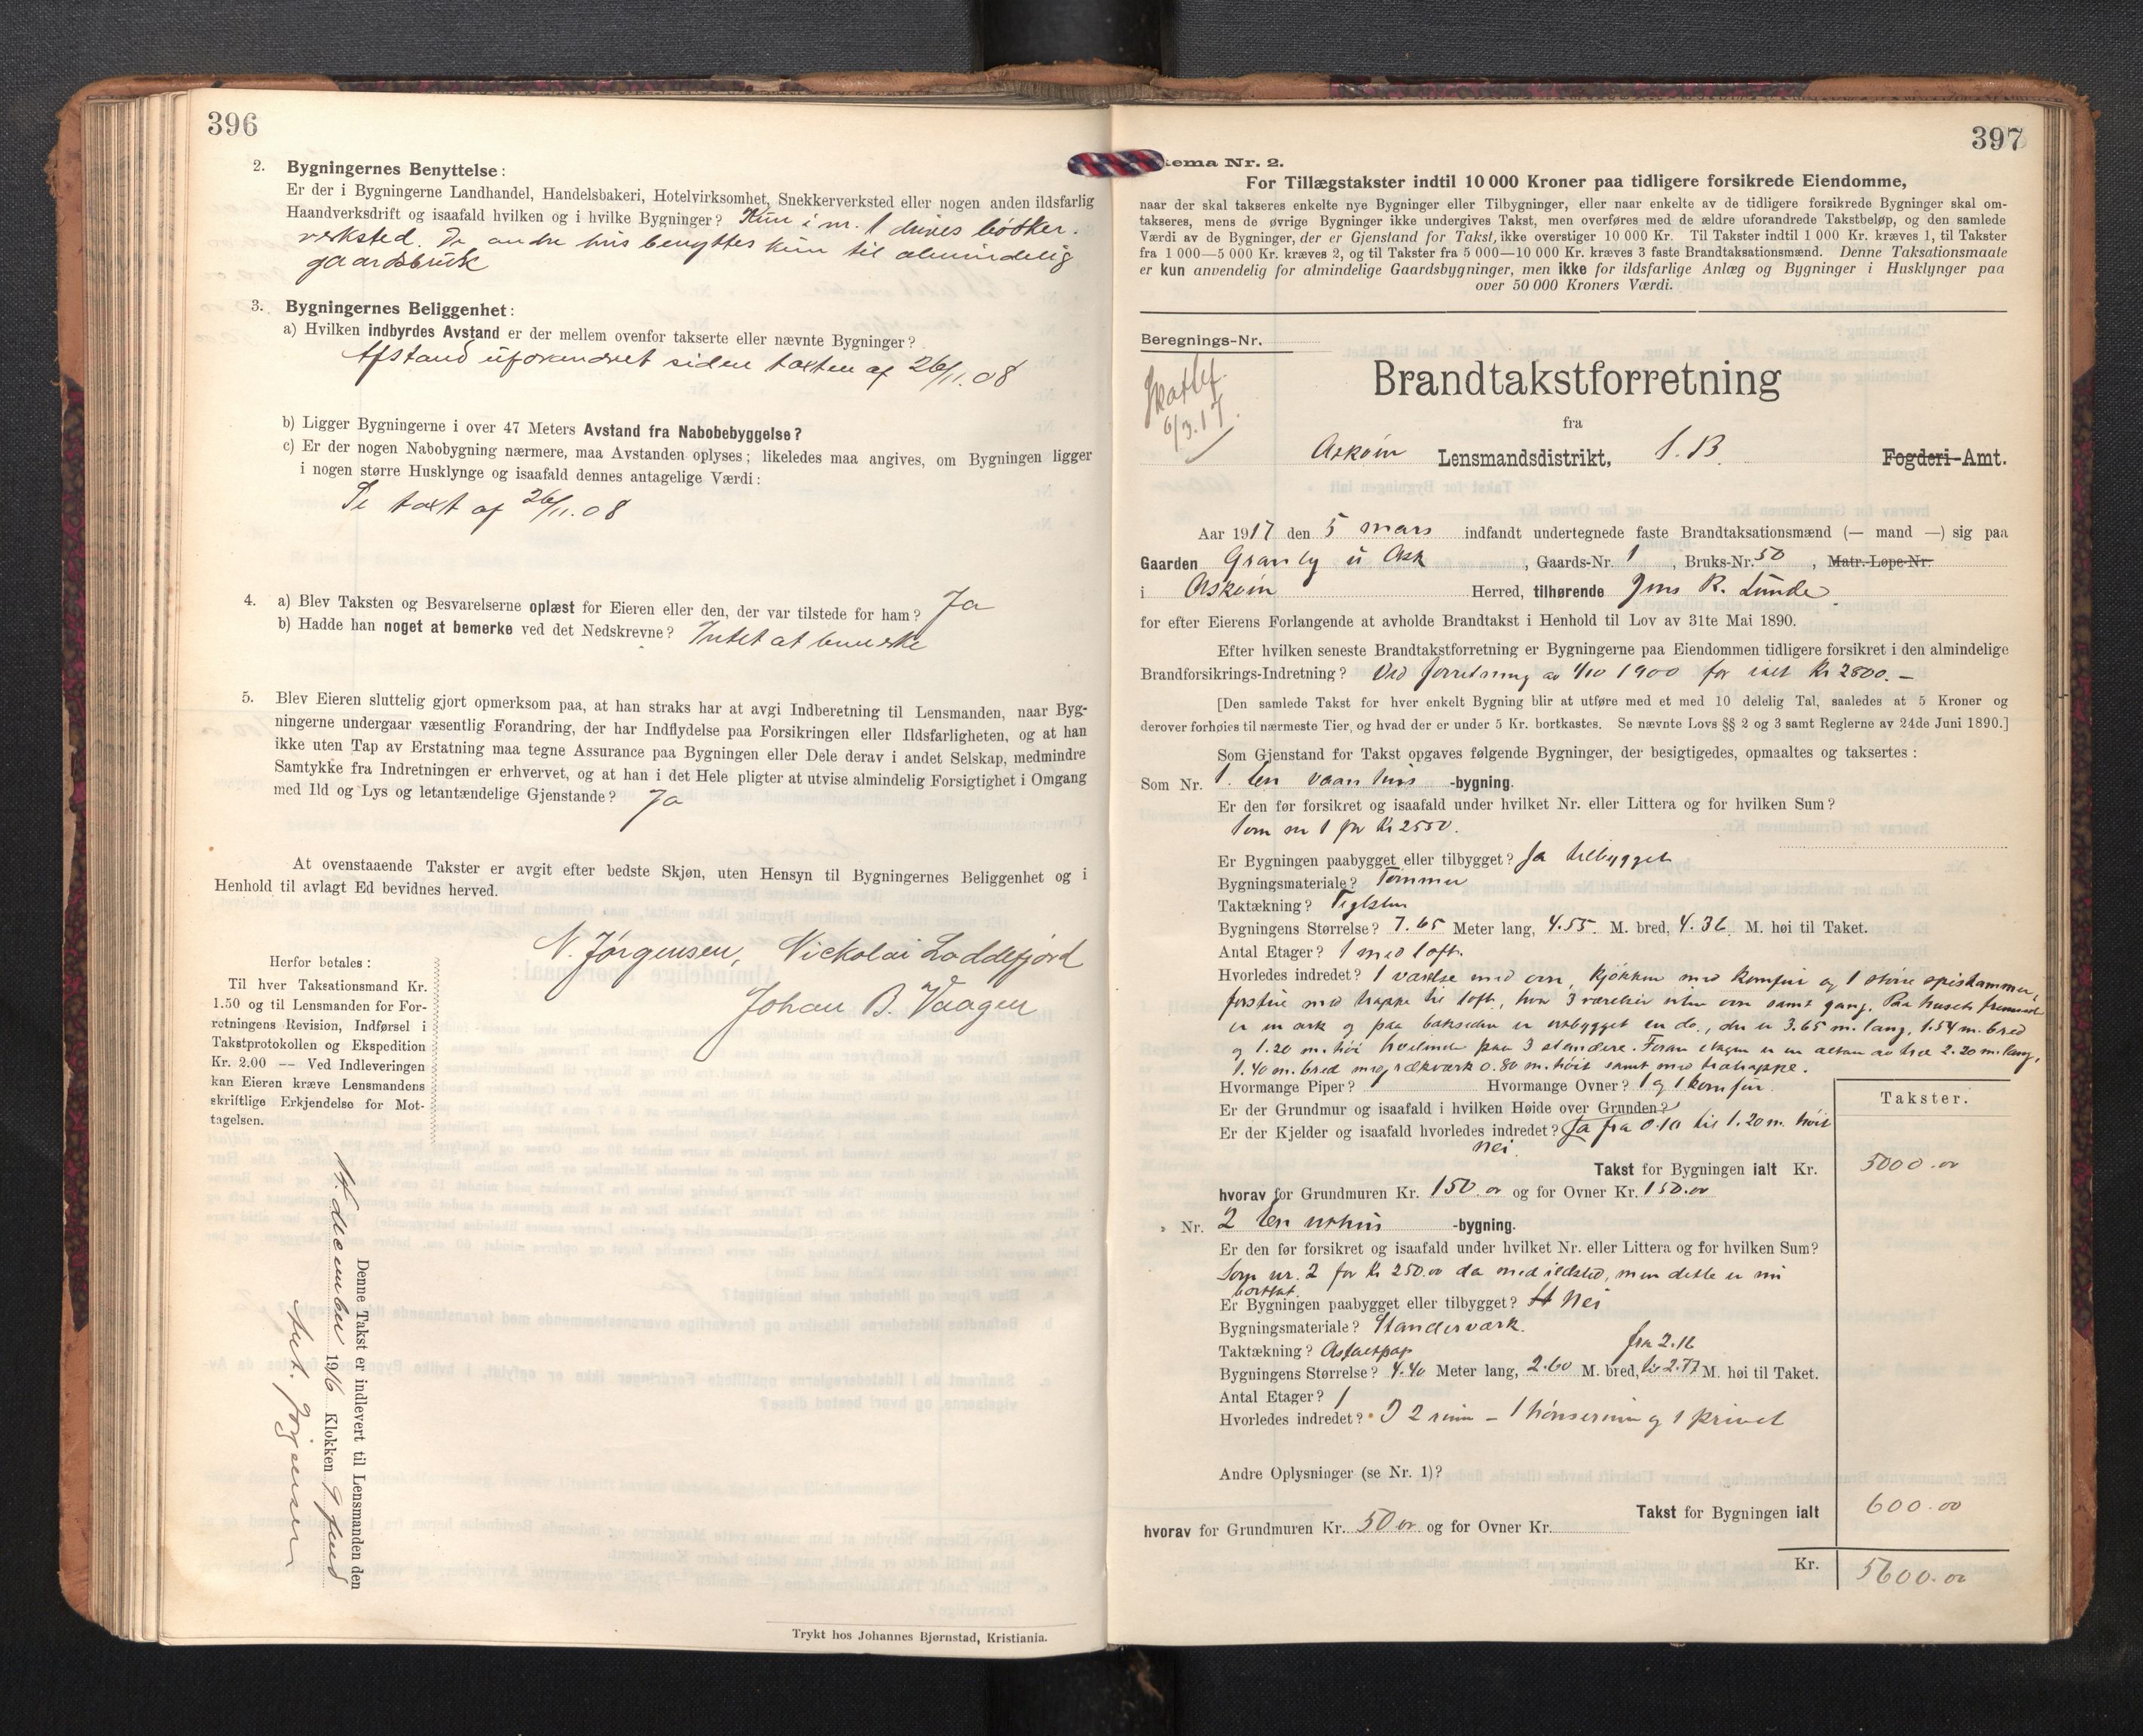 396
2. Bygningernes Benyttelse:
Er der i Bygningerne Landhandel, Handelsbakeri, Hotelvirksomhet, Snekkerverksted eller nogen anden ildsfarlig
Haandverksdrift og isaafald hvilken og i hvilke Bygninger? Kun i nr. 1 drives bøtker-
verksted. De andre hus benyttes kun til almindelig
gaardsbruk
3. Bygningernes Beliggenhet:
a) Hvilken indbyrdes Avstand er der mellem ovenfor takserte eller nævnte Bygninger?
Afstand uforandret siden taxten af 26/11.08
b) Ligger Bygningerne i over 47 Meters Avstand fra Nabobebyggelse?
c) Er der nogen Nabobygning nærmere, maa Avstanden oplyses; likeledes maa angives, om Bygningen ligger
i nogen større Husklynge og isaafald dennes antagelige Værdi:
Se taxt af 26/11.08
4. a) Blev Taksten og Besvarelserne oplæst for Eieren eller den, der var tilstede for ham? Ja
b) Hadde han noget at bemerke ved det Nedskrevne? Intet at bemerke
5. Blev Eieren sluttelig gjort opmerksom paa, at han straks har at avgi Indberetning til Lensmanden, naar Byg-
ningerne undergaar væsentlig Forandring, der har Indflydelse paa Forsikringen eller Ildsfarligheten, og at han
ikke uten Tap av Erstatning maa tegne Assurance paa Bygningen eller Dele derav i andet Selskap, medmindre
Samtykke fra Indretningen er erhvervet, og at han i det Hele pligter at utvise almindelig Forsigtighet i Omgang
med Ild og Lys og letantændelige Gjenstande? Ja
At ovenstaaende Takster er avgit efter bedste Skjøn, uten Hensyn til Bygningernes Beliggenhet og i
Henhold til avlagt Ed bevidnes herved.
N. Jørgensen, Nickolai Loddefjord
Johan B. Vaagen
Herfor betales:
Til hver Taksationsmand Kr.
1.50 og til Lensmanden for For-
retningens Revision, Indførsel i
Takstprotokollen og Ekspedition
Kr. 2.00 — Ved Indleveringen
kan Eieren kræve Lensmandens
skriftlige Erkjendelse for Mot-
tagelsen.
Denne Takst er indlevert til Lensmanden den
december 1916 Klokken
Jørgensen
Trykt hos Johannes Bjørnstad, Kristiania.
397
kema Nr. 2.
For Tillægstakster indtil 10 000 Kroner paa tidligere forsikrede Eiendomme,
naar der skal takseres enkelte nye Bygninger eller Tilbygninger, eller naar enkelte av de tidligere forsikrede Bygninger skal om-
takseres, mens de øvrige Bygninger ikke undergives Takst, men overføres med de ældre uforandrede Takstbeløp, og den samlede
Værdi av de Bygninger, der er Gjenstand for Takst, ikke overstiger 10 000 Kr. Til Takster indtil 1 000 Kr. kræves 1, til Takster
fra 1 000—5 000 Kr. kræves 2, og til Takster fra 5 000—10 000 Kr. kræves 3 faste Brandtaksationsmænd. Denne Taksationsmaate
er kun anvendelig for almindelige Gaardsbygninger, men ikke for ildsfarlige Anlæg og Bygninger i Husklynger paa
over 50 000 Kroners Værdi.
Beregnings-Nr.
6/3.17.
Brandtakstforretning
fra
Askøin Lensmandsdistrikt, S. B. Fogderi-Amt.
Aar 1917 den 5 mars indfandt undertegnede faste Brandtaksationsmænd (— mand —) sig paa
Gaarden Granly u Ask, Gaards-Nr. 1, Bruks-Nr. 50, Matr.-Løpe-Nr.
i Askøin Herred, tilhørende Jens R. Lunde
for efter Eierens Forlangende at avholde Brandtakst i Henhold til Lov av 31te Mai 1890.
Efter hvilken seneste Brandtakstforretning er Bygningerne paa Eiendommen tidligere forsikret i den almindelige
Brandforsikrings-Indretning? Ved forretning av 4/10 1900 for ialt Kr 2800.—
[Den samlede Takst for hver enkelt Bygning blir at utføre med et med 10 delelig Tal, saaledes at 5 Kroner og
derover forhøies til nærmeste Tier, og hvad der er under 5 Kr. bortkastes. Se nævnte Lovs §§ 2 og 3 samt Reglerne av 24de Juni 1890.]
Som Gjenstand for Takst opgaves følgende Bygninger, der besigtigedes, opmaaltes og taksertes:
Som Nr. 1. En vaanhus -bygning.
Er den før forsikret og isaafald under hvilket Nr. eller Littera og for hvilken Sum?
Som nr 1 for Kr 2550.
Er Bygningen paabygget eller tilbygget? Ja tilbygget
Bygningsmateriale? Tømmer
Taktækning? Teglsten
Bygningens Størrelse? 7.65 Meter lang, 4.55 M. bred, 4.36 M. høi til Taket.
Antal Etager? 1 med loft.
Hvorledes indredet? 1 værelse med ovn, kjøkken med komfur og 1 større spiskammer,
forstue med trappe til loft, hvor 3 værelser uten ovn samt gang. Paa husets fremside
er en ark og paa baksiden er utbygget en do., der er 3.65 m. lang, 1.54 m. bred
og 1.20 m. høi hvilende paa 3 stendere. Foran etagen er en altan av træ 2.20 m. lang,
1.40 m. bred med rækværk 0.80 m. høit samt med trætrappe.
Hvormange Piper? 1 Hvormange Ovner? 1 og 1 komfur.
Er der Grundmur og isaafald i hvilken Høide over Grunden?
Er der Kjelder og isaafald hvorledes indredet? Ja fra 0.10 til 1.20 m. høit
Nei.
Takster.
Takst for Bygningen ialt Kr. 5000.00
hvorav for Grundmuren Kr. 150.00 og for Ovner Kr. 150.00
» Nr. 2 En uthus -bygning.
Er den før forsikret og isaafald under hvilket Nr. eller Littera og for hvilken Sum?
Som nr. 2 for Kr 250.00 da med ildsted, men dette er nu
borttat.
Er Bygningen paabygget eller tilbygget? Nei
Bygningsmateriale? Standerværk.
Taktækning? Asfaltpap
fra 2.16
Bygningens Størrelse? 4.40 Meter lang, 2.60 M. bred, til 2.77 M. høi til Taket.
Antal Etager? 1
Hvorledes indredet? I 2 rum – 1 hønserum og 1 privet
Andre Oplysninger (se Nr. 1)?
Takst for Bygningen ialt 600.00
hvorav for Grundmuren Kr. 50.00 og for Ovner Kr.
Kr. 5600.00